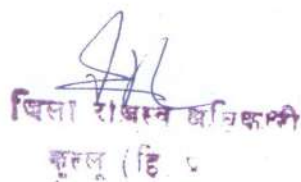 जिला राजस्व अधिकारी
कुल्लू (हि